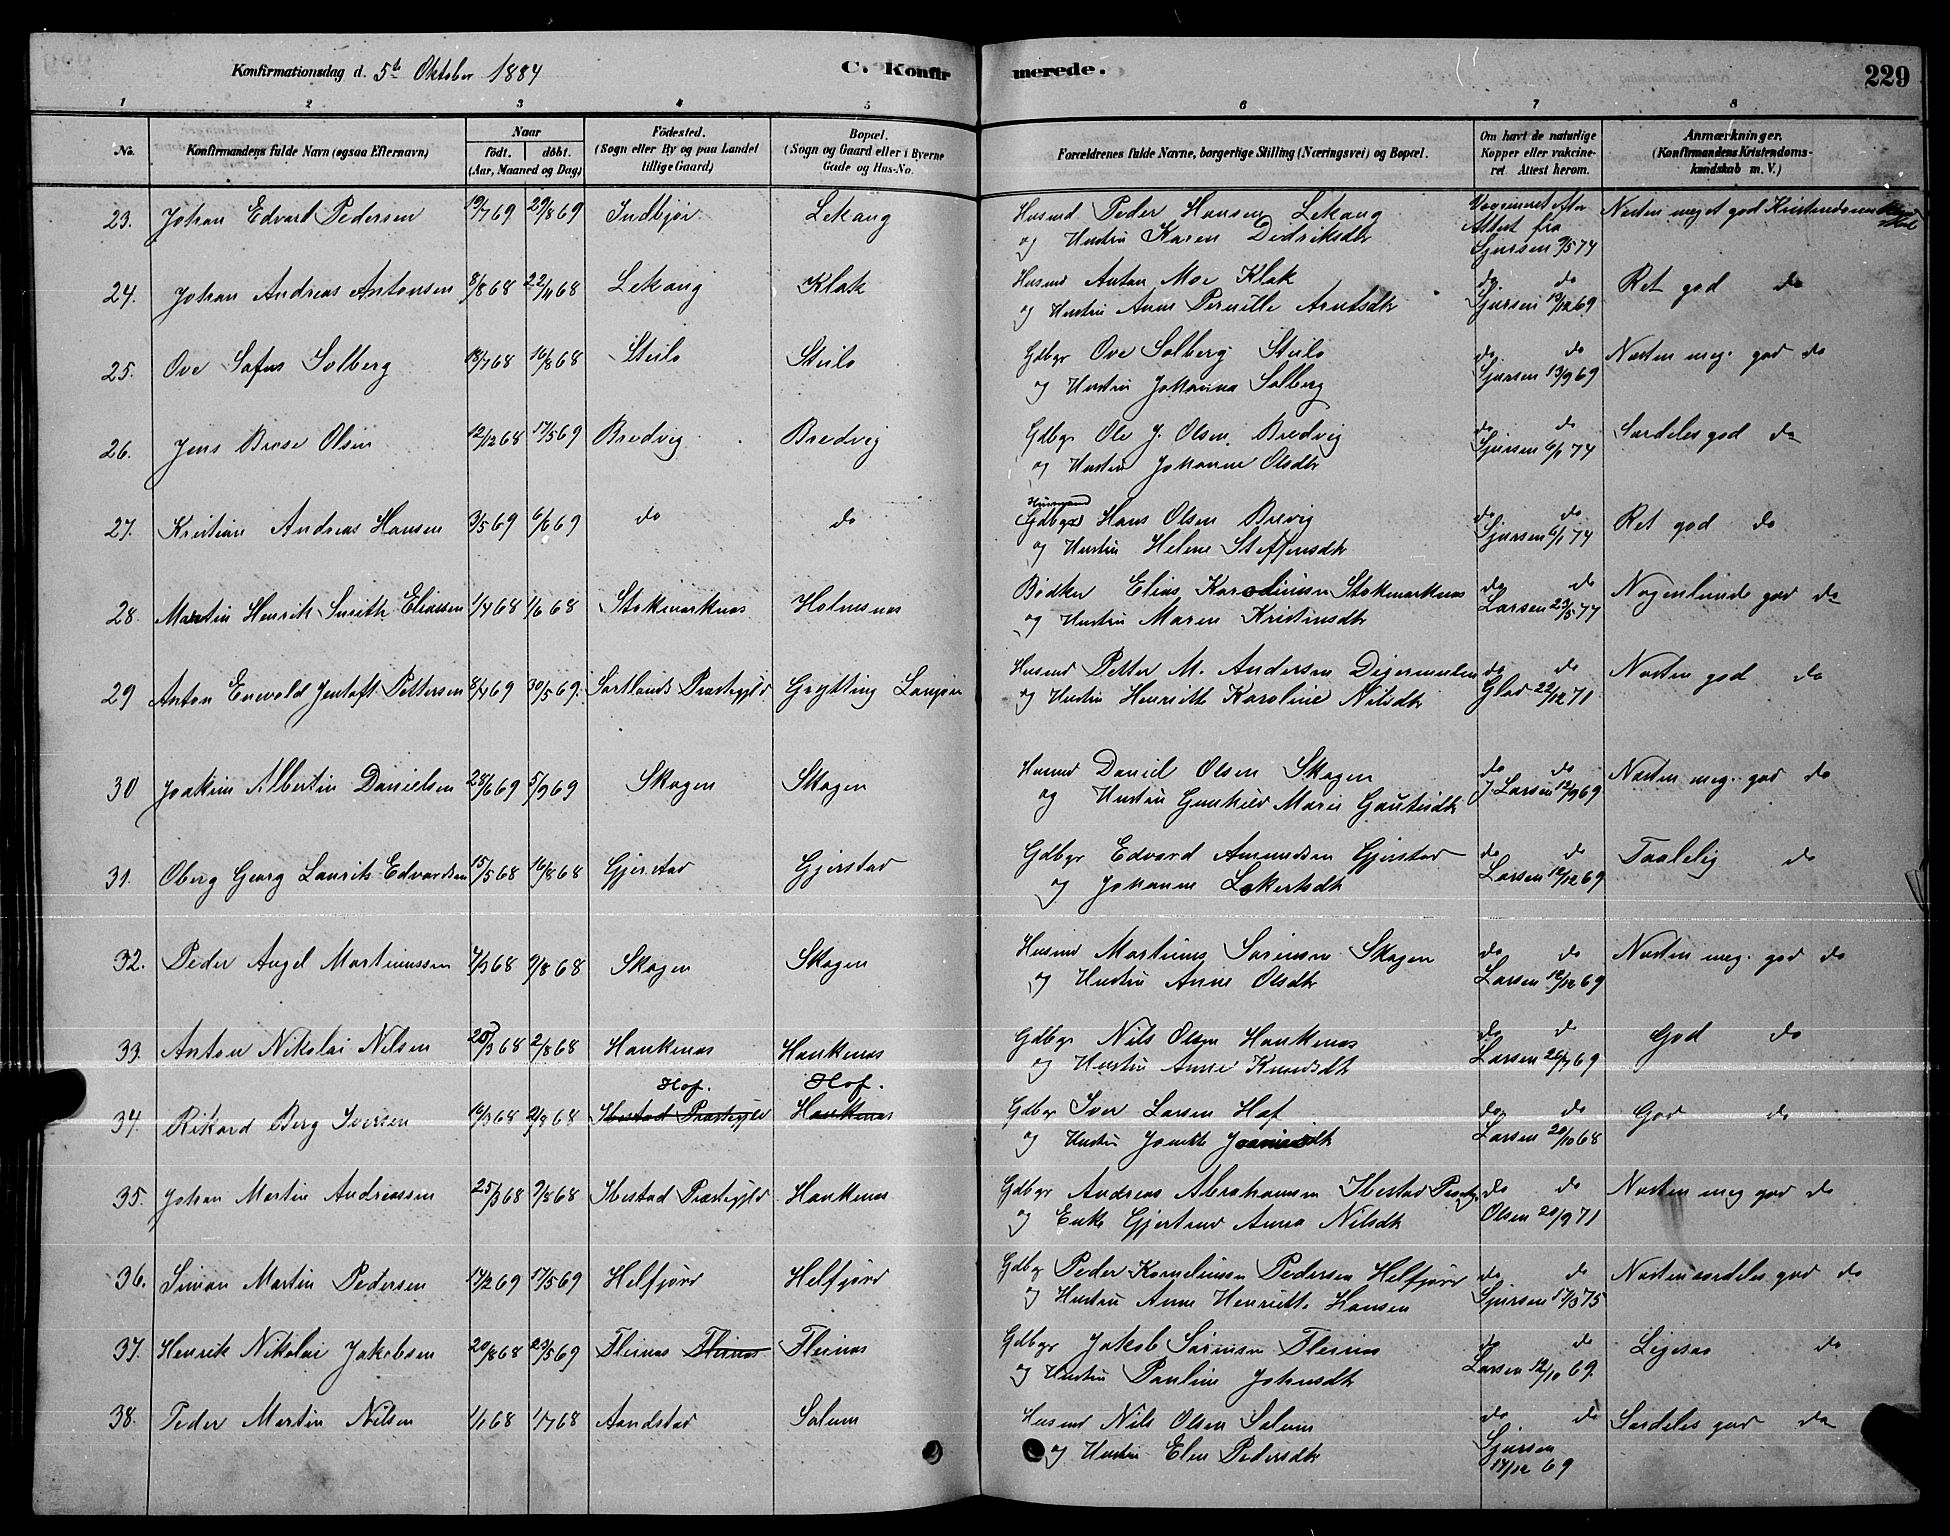 Konfirmationsdag d. 5te Oktober 1884
C. Konfir merede.
229
1 2 3 4 5 6 7 8
No.
Konfirmandens fulde Navn (ogsaa Efternavn)
Naar
födt. döbt.
(Aar, Maaned og Dag)
Födested.
(Sogn eller By og paa Landet
tillige Gaard)
Bopæl.
(Sogn og Gaard eller i Byerne
Gade og Hus-No.
Forældrenes fulde Navne, borgerlige Stilling (Næringsvei) og Bopæl.
Om havt de naturlige
Kopper eller vakcine-
ret. Attest herom.
Anmærkninger.
(Konfirmandens Kristendoms-
kundskab m. V.)
23. Johan Edvart Pedersen 19/7 69 29/8 69 Indbjor Lekang Husmd Peder Hansen Lekang Vaccineret efter Næsten meget god Kristendomskund
og Hustru Karen Dedriksdtr Attest fra
Sjursen 9/5 74
24. Johan Andreas Antonsen 8/8 68 22/11 68 Lekang Klak Husmd Anton Moe Klak do do Ret god do
og Hustru Anne Pernille Arntsdtr Sjursen 13/12 69
25. Ove Sofus Solberg 18/7 68 16/8 68 Steilo Steilo Gdbgr Ove Solberg Steilo do do Næsten meg. god do
og Hustru Johanna Solberg Sjursen 13/9 69
26. Jens Brose Olsen 12/12 68 17/5 69 Bredvig Bredvig Gdbgr Ole J. Olsen Bredvig do do Særdeles god do
og Hustru Johanne Olsdtr Sjursen 6/1 74
27. Kristian Andreas Hansen 3/5 69 6/6 69 do do Husmand
Gdbgr Hans Olsen Brevig do do Ret god do
og Hustru Helene Steffensdtr Sjursen 6/1 74
28. Martin Henrik Smith Eliassen 1/4 68 1/6 68 Stokmarknes Holmsnes Bødker Elias Karoliusen Stokmarknes do do Nogenlunde god do
og Hustru Maren Kristensdtr Larsen 23/5 77
29 Anton Enevold Jentoft Pettersen 8/4 69 30/5 69. Sortlands Præstegjeld Grytting Husmd Petter M. Andersen Digermulen do do Næsten god do
og Hustru Henriette Karoline Nilsdtr Glad 22/12 71
30 Joakim Albertin Danielsen 28/6 69 5/9 69 Skogen Skogen Husmd Daniel Olsen Skogen do do Næsten meg. god do
og Hustru Gunhild Maria Gautesdtr J. Larsen 12/9 69
31. Oberg Georg Laurits Edvardsen 15/5 68 16/8 68 Gjerstad Gjerstad Gdbgr Edvard Amundsen Gjerstad do do Taalelig do
og Johanne Lokertsdtr Larsen 12/12 69
32. Peder Angel Martinussen 7/3 68 2/8 68 Skogen Skogen Husmd Martinus Sørensen Skogen do do Næsten meg. god do
og Hustru Anne Olsdtr Larsen 12/12 69
33. Anton Nikolai Nilsen 20/3 68 2/8 68 Haukenes Haukenes Gdbgr Nils Olsen Haukenes do do God do
og Hustru Anne Knudsdtr Larsen 26/9 69
34. Rikard Berg Iversen 16/3 68 2/8 68 Hof. Ibestad Præstegjeld Hof. Haukenes Gdbgr Iver Larsen Hof do do God do
og Hustru Jonette Larsen 20/10 68
35. Johan Martin Andreassen 25/3 68 9/8 68 Ibestad Præstegjeld Haukenes Gdbgr Andreas Abrahamsen Ibestad Præstg. do do Næsten meg god do
og Enke Gjertrud Anna Nilsdtr Olsen 20/9 71
36. Simon Martin Pedersen 14/2 69 17/5 69 Helfjord Helfjord Gdbg Peder Kornelius Pedersen Helfjord do do Næsten særdeles god do
og Hustru Anne Henriette Hansen Sjursen 17/5 75
37. Henrik Nikolai Jakobsen 20/8 68 23/5 69 Fleines Fleines Fleines Gdbgr Jakob Sørensen Fleines do do Ligesaa do
og Hustru Pauline Johnsdtr Larsen 12/10 69.
38. Peder Martin Nilsen 1/1 68 1/7 68 Aandstad Solum Husmd Nils Olsen Solum do do Særdeles god do
og Hustru Elen Pedersdtr Sjursen
14/12 69